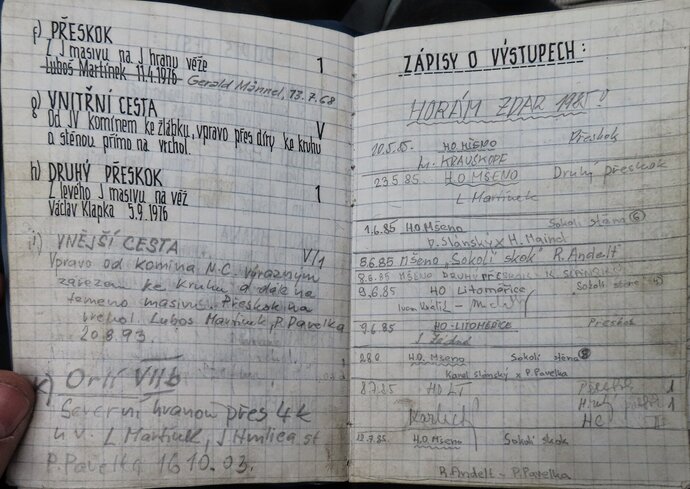 f) PŘESKOK
Z J masivu na J hranu věže 1
Luboš Martínek 11.4.1976 Gerald Männel, 13.7.68
g) VNITŘNÍ CESTA
Od JV komínem ke žlábku, vpravo přes díry ke kruhu V
a stěnou přímo na vrchol.
h) DRUHÝ PŘESKOK
Z levého J masivu na věž 1
Václav Klapka 5.9.1976
i) VNĚJŠÍ CESTA V/1
Vpravo od komína N.C. výrazným
zářezem ke kruhu a dále na
temeno masivu. Přeskok na
vrchol. Luboš Martínek, P. Pavelka
20.8.93.
Orlí VIIb
Severní hranou přes 4k
n.v. L Martínek, J Hmlica st
P. Pavelka 16.10.03.
ZÁPISY O VÝSTUPECH:
HORÁM ZDAR 1985
10.5.85. HO MŠENO Přeskok
M. KRAUSKOPF
23.5.85. H.O. MŠENO Druhý přeskok
L Martínek
1.6.85 HO Mšeno Sokolí stěna (6)
D. Slánský x H. Maincl
8.6.85 Mšeno „Sokolí skok" R. Andelt
8.6.85 MŠENO DRUHÝ PŘESKOK
9.6.85 HO Litoměřice Sokolí stěna
Ivan
9.6.85 HO-LITOMĚŘICE Přeskok
J
28.6 H.O. Mšeno Sokolí stěna (8)
Karel Slánský x P. Pavelka
8.7.85 HO LT Přeskok 1
Druhý 1
HC II
12.7.85 H.O. Mšeno Sokolí skok
R. Andelt - P. Pavelka